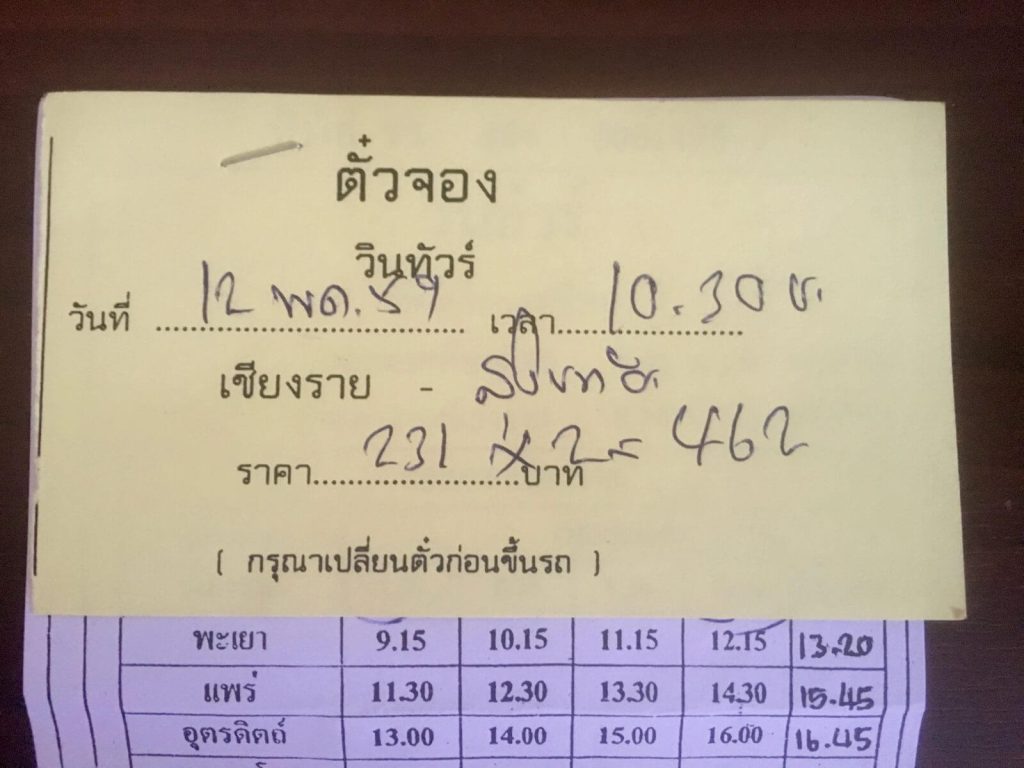 ตั๋วจอง
วินทัวร์
วันที่ 12 พด. 59 เวลา 10.30 น.
เชียงราย - สุโขทัย
ราคา 231 x 2 = 462 บาท
( กรุณาเปลี่ยนตั๋วก่อนขึ้นรถ )
พะเยา 9.15 10.15 11.15 12.15 13.20
แพร่ 11.30 12.30 13.30 14.30 15.45
อุตรดิตถ์ 13.00 14.00 15.00 16.00 16.45